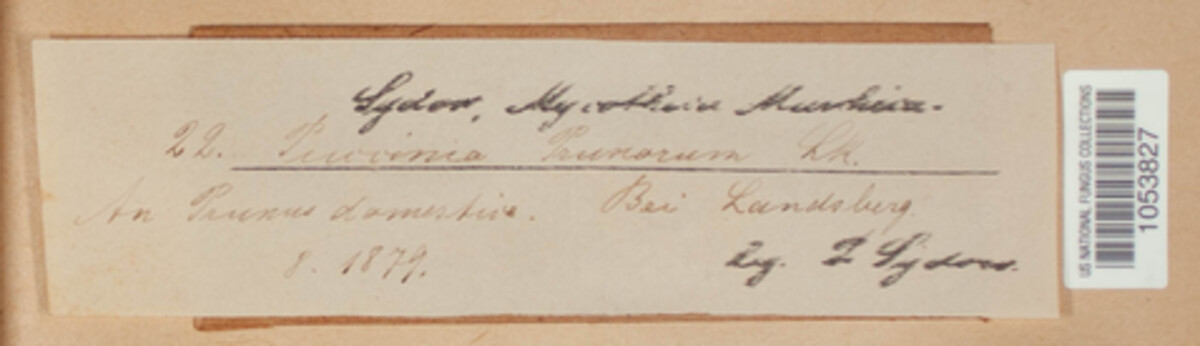 Sydow, Mycotheca Marchica.
22. Puccinia Prunorum Lk.
An Prunus domestica. Bei Landsberg.
8. 1879.
leg. P Sydow.
US NATIONAL FUNGUS COLLECTIONS
1053827